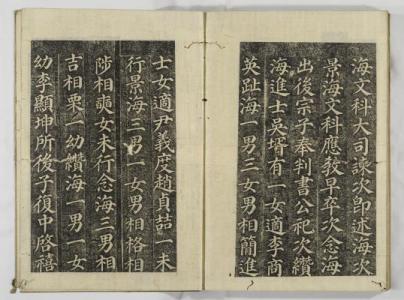 海文科大司諫次卽述海次
景海文科應敎早卒次念海
出後宗子奉判書公祀次纘
海進士吳壻有一女適李商
英趾海一男三女男相簡進
士女適尹義度趙貞喆一未
行景海三男一女男相格相
陟相　女未行念海二男相
吉相栗一幼纘海一男一女
幼李顯坤所後子復中啓禧